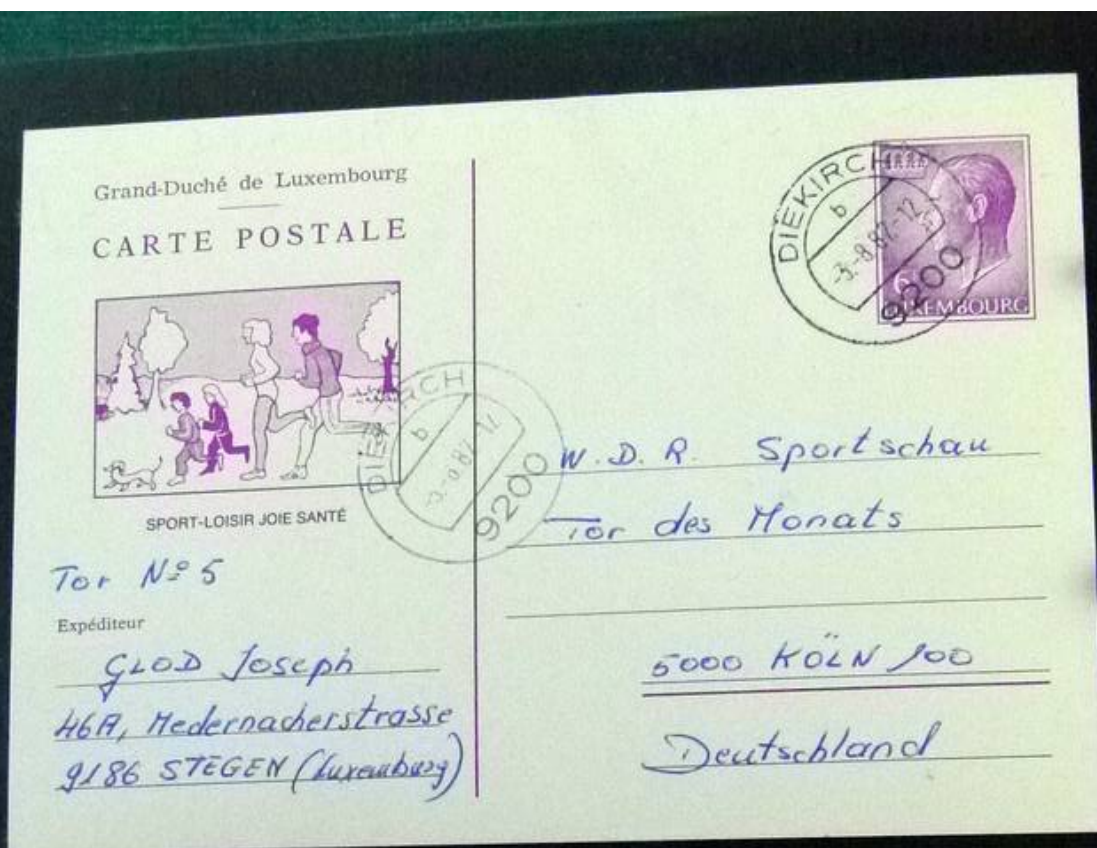 Grand-Duché de Luxembourg
CARTE POSTALE
SPORT-LOISIR JOIE SANTÉ
Tor Nº 5
Expéditeur
GLOD Joseph
46A, Medernacherstrasse
9186 STEGEN (Luxemburg)
DIEKIRCH
b
-3.-8.87.-12
9200
6F
LUXEMBOURG
DIEKIRCH
b
9200
W.D.R. Sportschau
Tor des Monats
5000 KÖLN 100
Deutschland